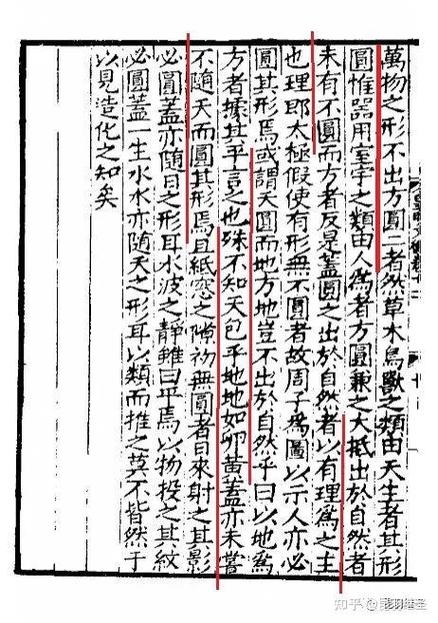 萬物之形不出方圓二者然草木鳥獸之類由天生者其形
圓惟器用室宇之類由人爲者方圓兼之大抵出於自然者
未有不圓而方者反是蓋圓之出於自然者以有理爲之主
也理即太極假使有形無不圓者故周子爲圖以示人亦必
圓其形焉或謂天圓而地方地豈不出於自然乎曰以地爲
方者據其平言之也殊不知天包乎地地如卵黃蓋亦未嘗
不隨天而圓其形焉且紙窓之隙初無圓者日來射之其影
必圓蓋亦隨日之形耳水波之靜雖曰平焉以物投之其紋
必圓蓋一生水水亦隨天之形耳以類而推之莫不皆然于
以見造化之知矣
知乎 @昆羽继圣